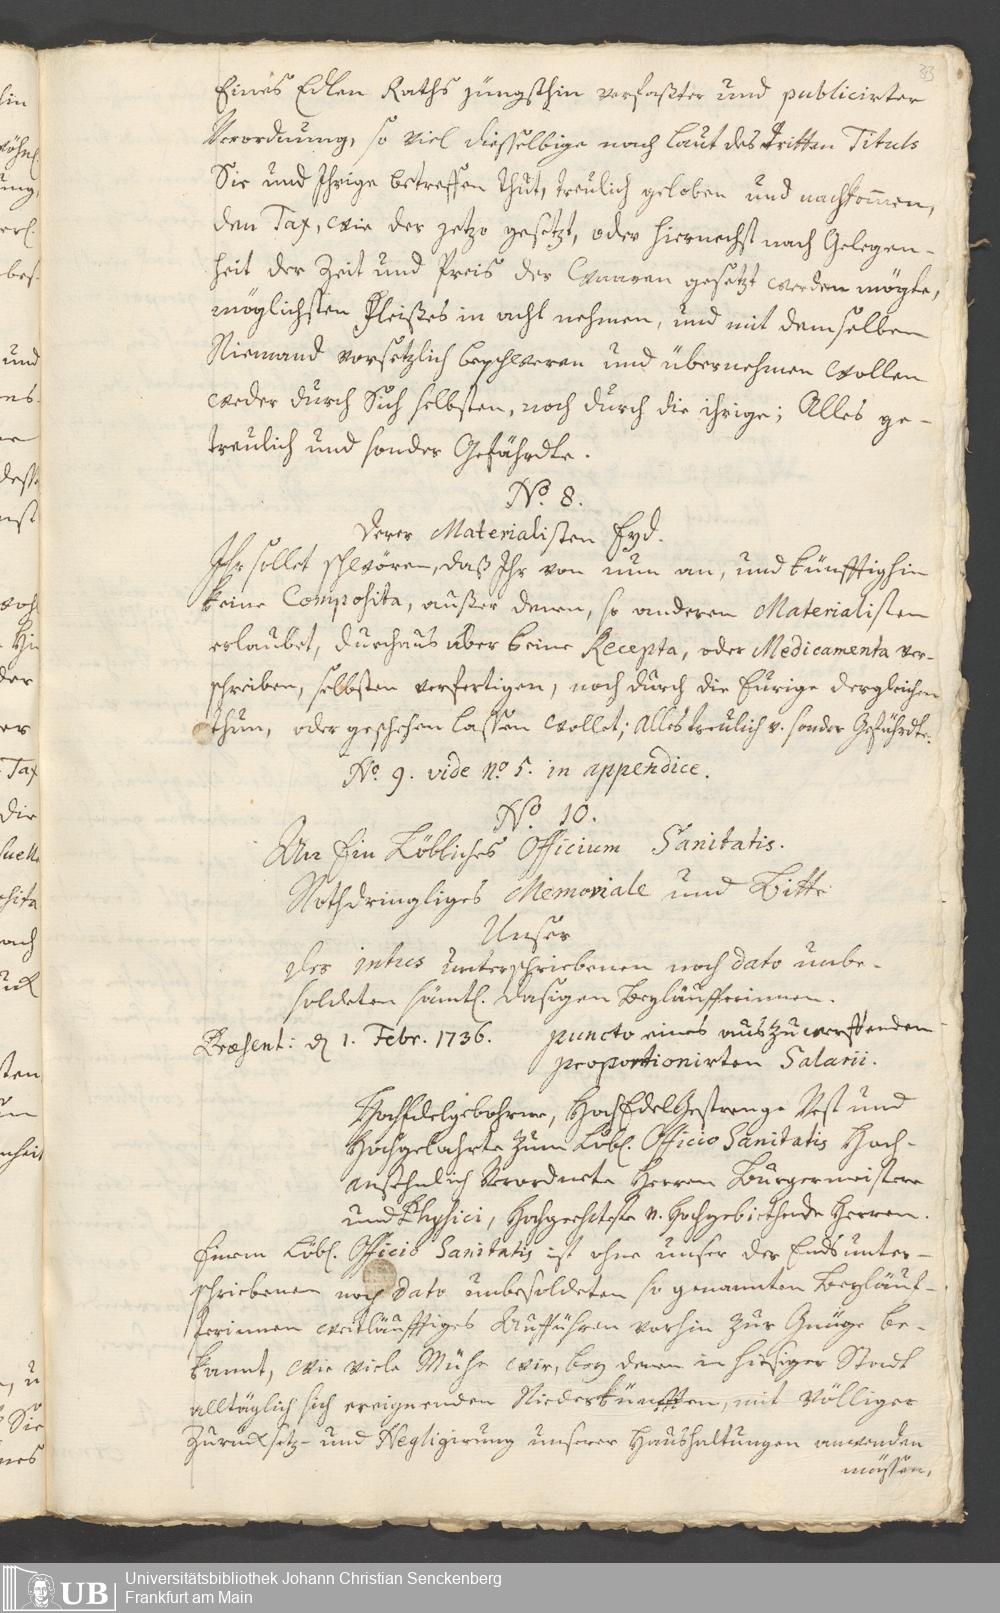 33
Eines Edlen Raths jüngsthin verfaßter und publicirter
Verordnung, so viel diesselbige nach laut des dritten Tituls
Sie und Ihrige betreffen thut, treulich geloben und nachkom̄en,
den Tax, wie der jetzo gesetzt, oder hiernechst nach Gelegen-
heit der Zeit und Preis der Waaren gesetzt werden mögte,
möglichsten Fleißes in acht nehmen, und mit demselben
Niemand vorsetzlich beschweren und übernehmen wollen
weder durch Sich selbsten, noch durch die ihrige; Alles ge-
treulich und sonder Gefährdte.
No. 8.
Derer Materialisten Eyd.
Ihr sollet schwören, daß Ihr von nun an, und künfftighin
keine Composita, außer denen, so anderen Materialisten
erlaubet, durchaus aber keine Recepta, oder Medicamenta ver-
schreiben, selbsten verfertigen, noch durch die Eurige dergleichen
thun, oder geschehen lassen wollet; alles treulich u. sonder Gefährdte.
No. 9. vide no. 5. in appendice.
No. 10.
An Ein Löbliches Officium Sanitatis.
Nothdringliges Memoriale und Bitte
Unser
der intus unterschriebenen noch dato unbe-
soldeten sämtl. dasigen Beyläufferinnen.
Præsent: d. 1. Febr. 1736.
puncto eines auszuwerffenden
proportionirten Salarii.
HochEdelgebohrne, HochEdelGestrenge Vest und
Hochgelahrte zum Löbl. Officio Sanitatis Hoch-
ansehnlich Verordnete Herren Burgermeistere
und Physici, Hochgeehrteste u. Hochgebiethende Herren.
Einem Löbl. Officio Sanitatis ist ohne unser der Ends unter-
schriebenen noch dato unbesoldeten so genannten Beyläuf-
ferinnen weitläufftiges Anführen vorhin zur Gnüge be-
kannt, wie viele Mühe wir, bey denen in hiesiger Stadt
alltäglich sich ereignenden Niederkünfften, mit völliger
Zurücksetz- und Negligirung unserer Haushaltungen anwenden
müssen,
UB
Universitätsbibliothek Johann Christian Senckenberg
Frankfurt am Main